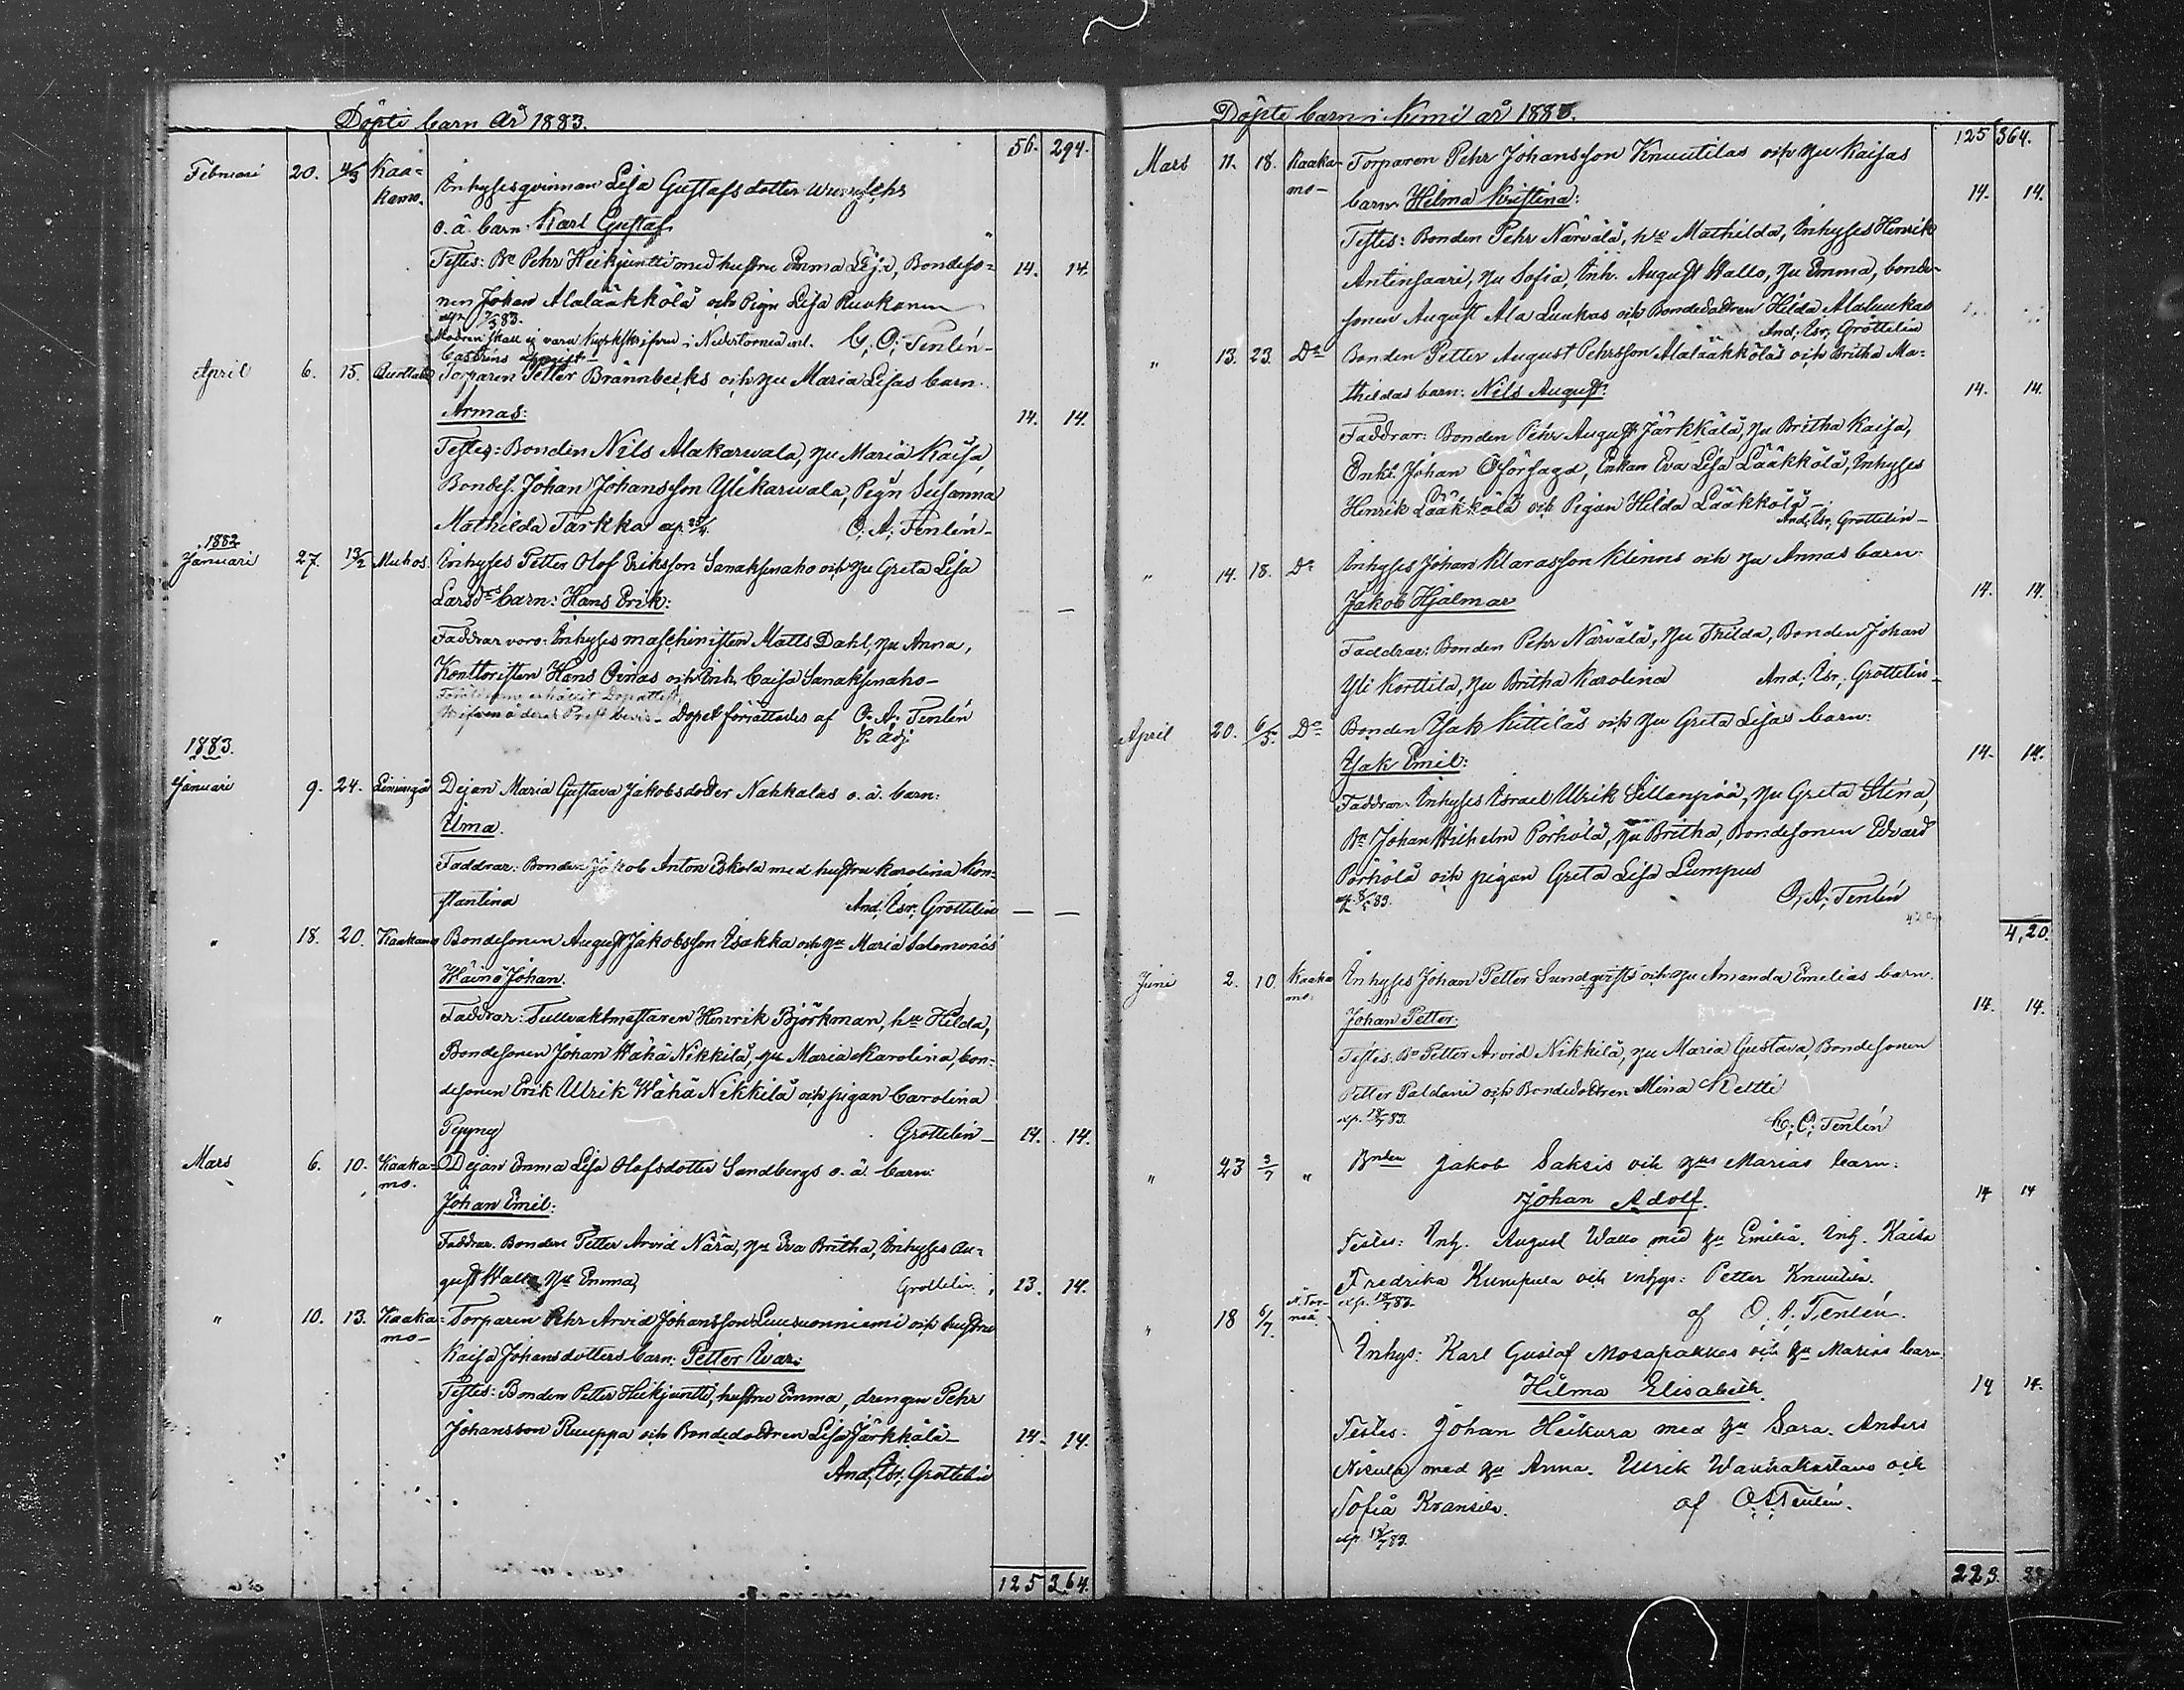 Döpte barn år 1883.
56. 294.
Februari 20. 4/3 Kaa=
kamo.
Inhysesqvinnan Lisa Gustafsdotter
o. ä. barn: Karl Gustaf
Testes: Be Pehr Heikjuntti med hustru Emma Lisa, Bondeso= 14. 14.
nen Johan Alalääkkölä och Pign Lisa Ruokanen
7/3 83.
Modren skall ej vara kyrkskrifven i Nedertorneå enl. O; A; Tenlén
Castréns
April 6. 15. Torparen Petter Brännbecks och hu Maria Lisas barn.
Armas: 14. 14.
Testes: Bonden Nils Alakarvala, hu Maria Kaisa,
Bondes. Johan Johansson Ylikarvala, Pign Susanna
Mathilda Tarkka O; A; Tenlén-
1882
Januari 27. 13/2 Muhos. Inhyses Petter Olof Eriksson Sanaksenaho och hu Greta Lisa
Larsds barn: Hans Erik: —
Faddrar voro: Inhyses maschinisten Matts Dahl, hu Anna,
Konttoristen Hans Oinas och Inh. Caisa Sanaksenaho-
Dopet förrättades af O. A. Tenlén
P. Adj
1883.
Januari 9. 24. Limingo Dejan Maria Gustava Jakobsdotter Nahkalas o. ä. barn:
Elma.
Faddrar: Bonden Jakob Anton Eskola med hustru Karolina Kon=
stantina And; Isr; Grottelin — —
" 18. 20. Kaakamo Bondesonen August Jakobsson Isakka och hu Maria Salomonis
Wäinö Johan.
Faddrar: Tullvaktmästaren Henrik Björkman, hu Hilda,
Bondesonen Johan Wähä Nikkilä, hu Maria Karolina, bon=
desonen Erik Ulrik Wähä Nikkilä och pigan Carolina
Grottelin- 14. 14.
Mars 6. 10. Kaaka=
mo.
Dejan Emma Lisa Olofsdotter Sandbergs o. ä. barn:
Johan Emil:
Faddrar. Bonden Petter Arvid Närä, hu Eva Britha, Inhyses Au=
gust Wallo hu Emma, Grottelin. 13. 14.
" 10. 13. Kaaka=
mo-
Torparen Pehr Arvid Johansson Luusuanniemi och hustru
Kaisa Johansdotters barn: Petter Ivar:
Testes: Bonden Petter Heikjuntti, hustru Emma, drengen Pehr
Johansson Ruuppa och Bondedottren Lisa Järkkälä- 14. 14.
And; Isr; Grottelin
125 364.
Döpte barn i Kemi år 1883.
125 364.
Mars 11. 18. Kaaka-
mo-
Torparen Pehr Johansson Knuutilas och hu Kaisas
barn Hilma Kristina: 14. 14.
Testes: Bonden Pehr Närvälä, hu Mathilda, Inhyses Henrik
Antinsaari, hu Sofia, Inh. August Wallo, hu Emma, bonde=
sonen August Ala Luukas och Bondedottren Hilda Alaluukas
And; Isr; Grottelin
" 13. 23. Do Bonden Petter August Pehrsson Alalääkköläs och Britha Ma=
thildas barn: Nils August: 14. 14.
Faddrar: Bonden Pehr August Järkkälä, hu Britha Kaisa,
Enkl. Johan Oförsagd, Enkan Eva Lisa Lääkkölä, Inhyses
Henrik Lääkkölä och Pigan Hilda Lääkkölä-
And; Isr; Grottelin-
" 14. 18. Do Inhyses Johan Klarasson Klinns och hu Annas barn
Jakob Hjalmar 14. 14.
Faddrar: Bonden Pehr Närvälä, hu Thilda, Bonden Johan
Yli Korttila, hu Britha Karolina And; Isr; Grottelin-
April 20. 6/5. Do Bonden Isak Kittiläs och hu Greta Lisas barn:
Isak Emil: 14. 14.
Faddrar. Inhyses Israel Ulrik Sillanpää, hu Greta Stina,
Be Johan Wilhelm Pörhölä, hu Britha, Bondesonen Edvard
Pörhölä och pigan Greta Lisa Lumpus
8/5 83. O; A; Tenlén
4,20.
Juni 2. 10. Kaaka
mo.
Inhyses Johan Petter Sundqvists och hu Amanda Emelias barn.
Johan Petter: 14. 14.
Testes. Be Petter Arvid Nikkilä, hu Maria Gustava, Bondesonen
Petter Paldani och Bondedottren Mina Keltti
xp. 18/7 83. O; A; Tenlén
" 23 3/7 " Bnden Jakob Saksis och hus Marias barn:
Johan Adolf. 14 14
Testes: Inh. August Wallo med hu Emilia. Inh. Kaisa
Fredrika Kumpula och inhys: Petter Knuutila.
xp. 18/7 83. af O. A. Tenlén.
" 18 6/7 N. Tor-
neå.
Inhys: Karl Gustaf Mosapakkas och hu Marias barn
Hilma Elisabeth. 14 14.
Testes: Johan Heikura med hu Sara. Anders
Nisula med hu Anna. Ulrik och
Sofia Kransila. af O. A. Tenlén.
xp. 18/7 83.
223.